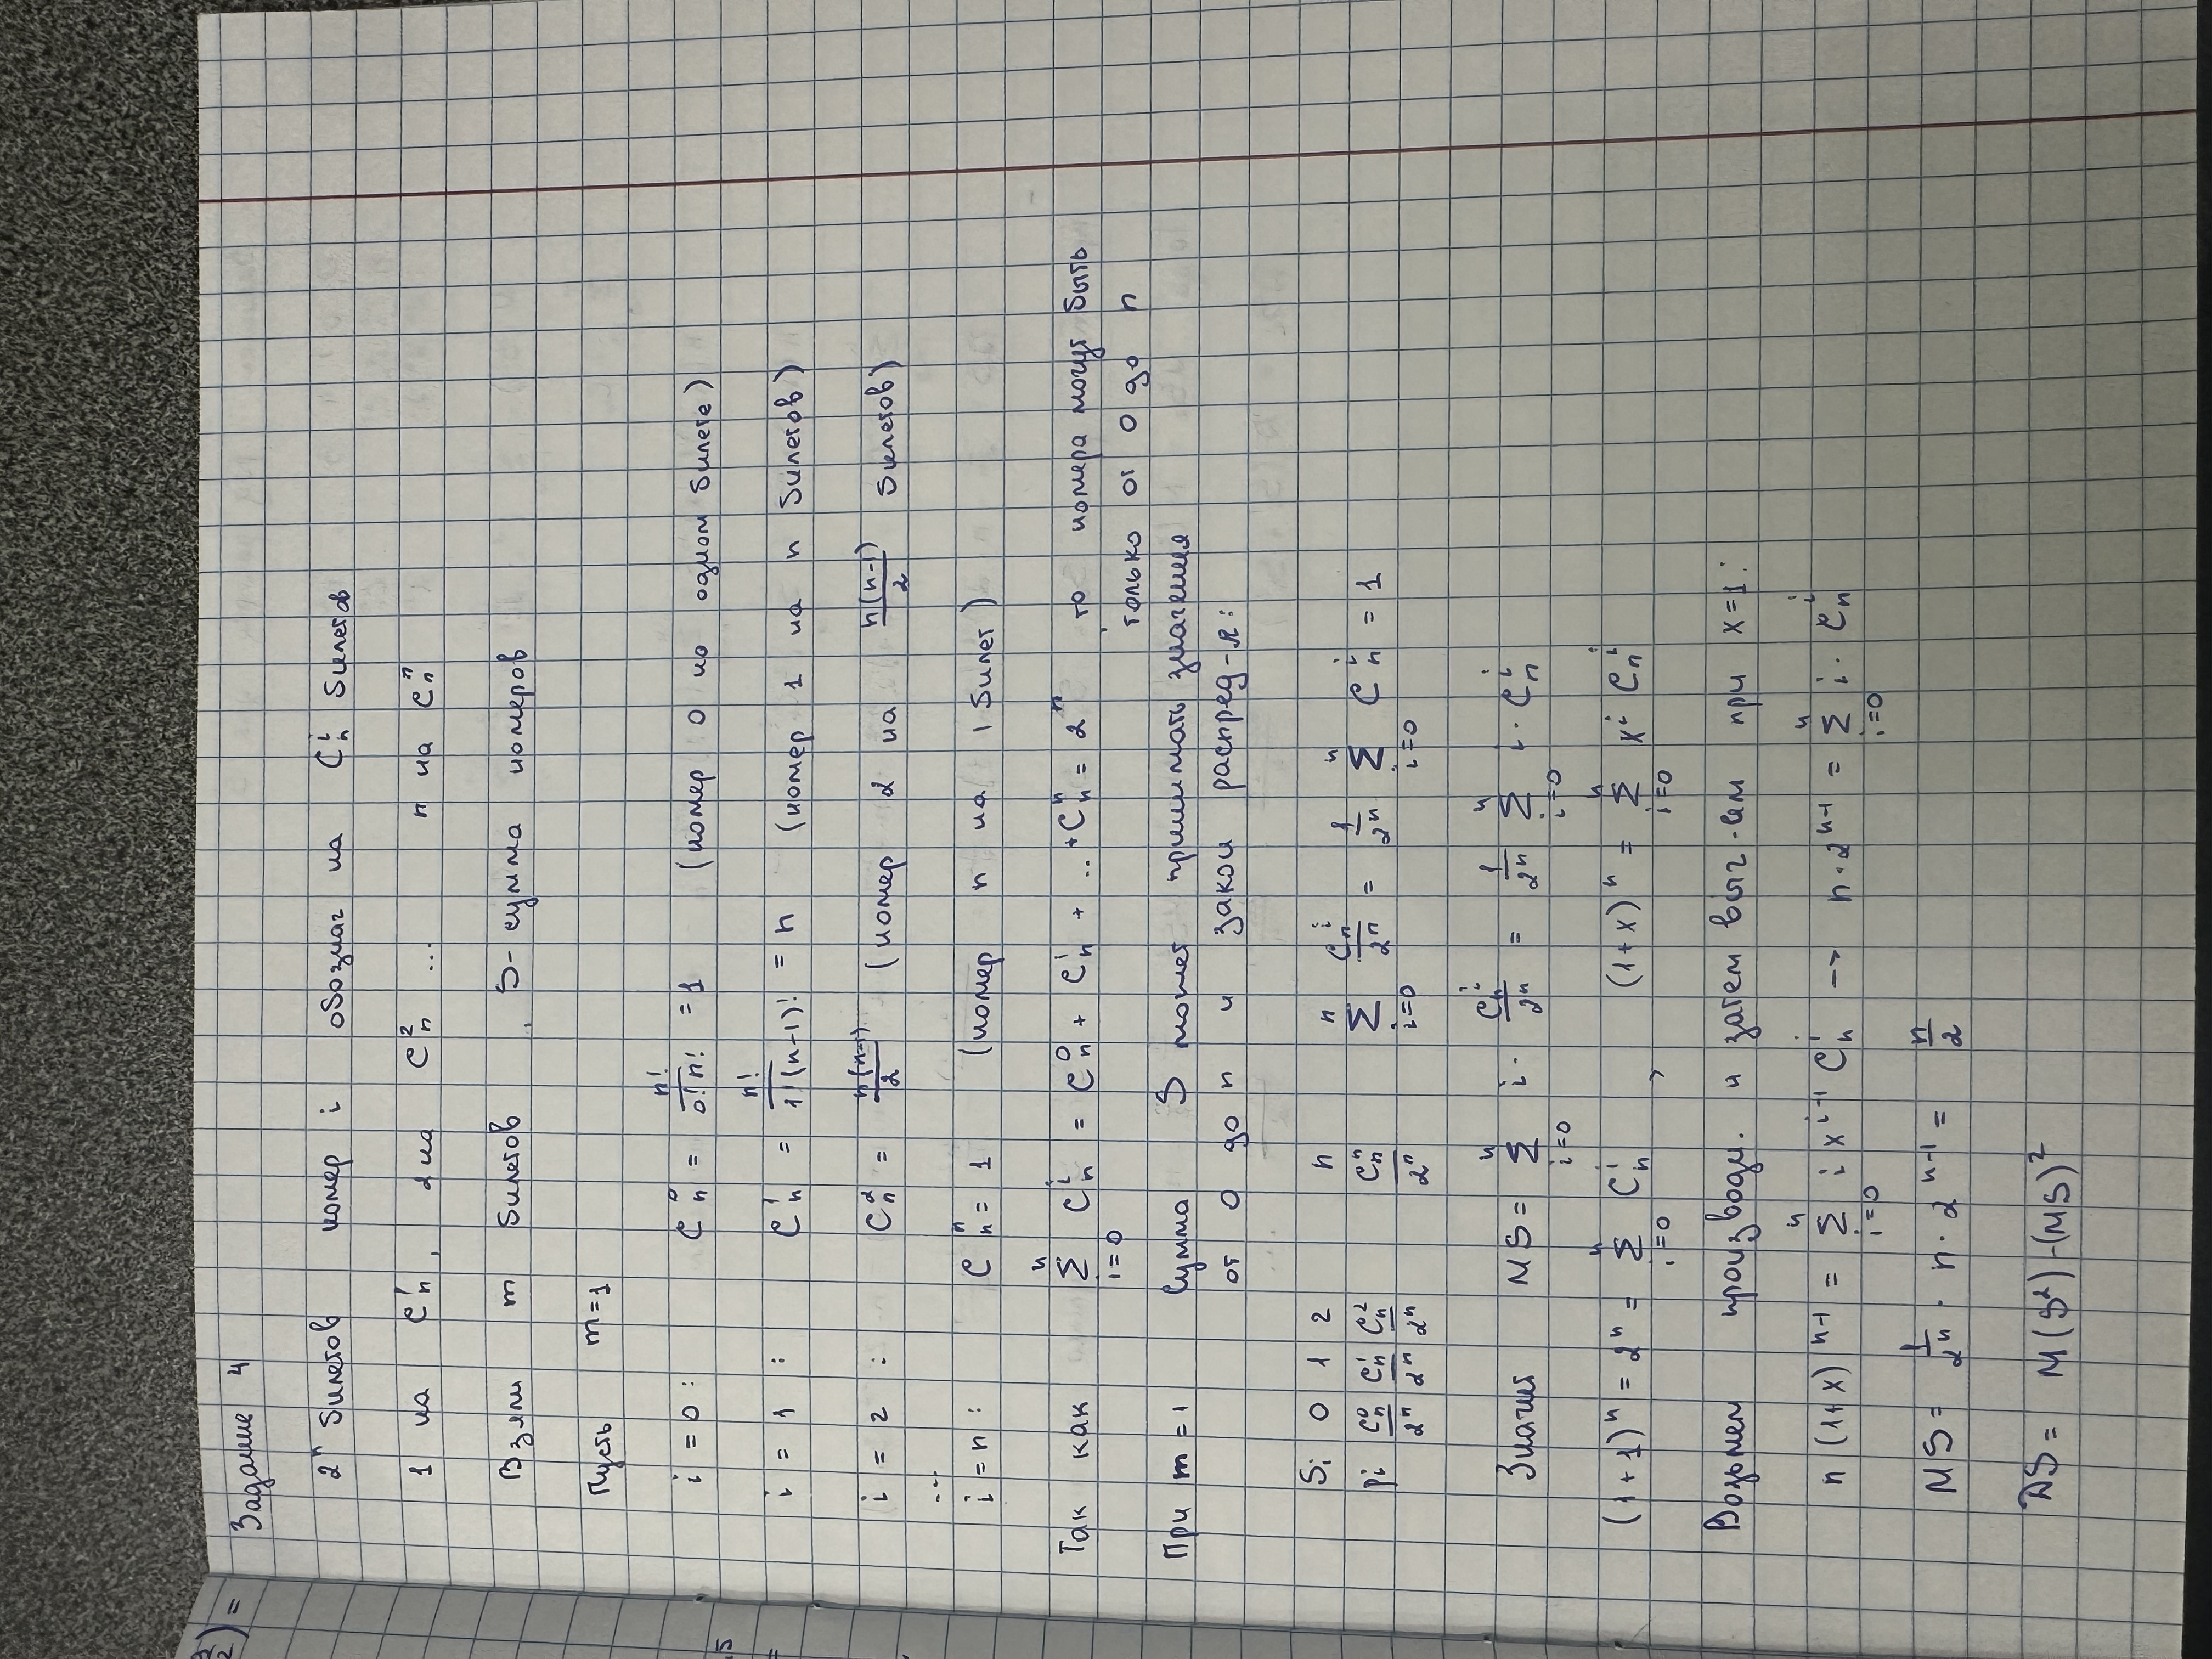 Задание 4
2ⁿ билетов номер i обознач на Cₙⁱ билетов
1 на Cₙ¹, 2 на Cₙ² ... n на Cₙⁿ
Взяли m билетов, S - сумма номеров
Пусть m = 1
i = 0 : Cₙ⁰ = n!/(0! n!) = 1 (номер 0 на одном билете)
i = 1 : Cₙ¹ = n!/(1!(n-1)!) = n (номер 1 на n билетов)
i = 2 : Cₙ² = n(n-1)/2 (номер 2 на n(n-1)/2 билетов)
...
i = n : Cₙⁿ = 1 (номер n на 1 билет)
Так как ∑ᵢ₌₀ⁿ Cₙⁱ = Cₙ⁰ + Cₙ¹ + .. + Cₙⁿ = 2ⁿ то номера могут быть
только от 0 до n
При m = 1 Сумма S может принимать значения
от 0 до n и закон распред-я:
Sᵢ 0 1 2 n
pᵢ Cₙ⁰/2ⁿ Cₙ¹/2ⁿ Cₙ²/2ⁿ Cₙⁿ/2ⁿ ∑ᵢ₌₀ⁿ Cₙⁱ/2ⁿ = 1/2ⁿ ∑ᵢ₌₀ⁿ Cₙⁱ = 1
Значит MS = ∑ᵢ₌₀ⁿ i · Cₙⁱ/2ⁿ = 1/2ⁿ ∑ᵢ₌₀ⁿ i · Cₙⁱ
(1+1)ⁿ = 2ⁿ = ∑ᵢ₌₀ⁿ Cₙⁱ , (1+x)ⁿ = ∑ᵢ₌₀ⁿ xⁱ Cₙⁱ
Возьмем производн. и затем выч-им при x=1:
n(1+x)ⁿ⁻¹ = ∑ᵢ₌₀ⁿ i xⁱ⁻¹ Cₙⁱ -> n·2ⁿ⁻¹ = ∑ᵢ₌₀ⁿ i · Cₙⁱ
MS = 1/2ⁿ · n · 2ⁿ⁻¹ = n/2
DS = M(S²) - (MS)²